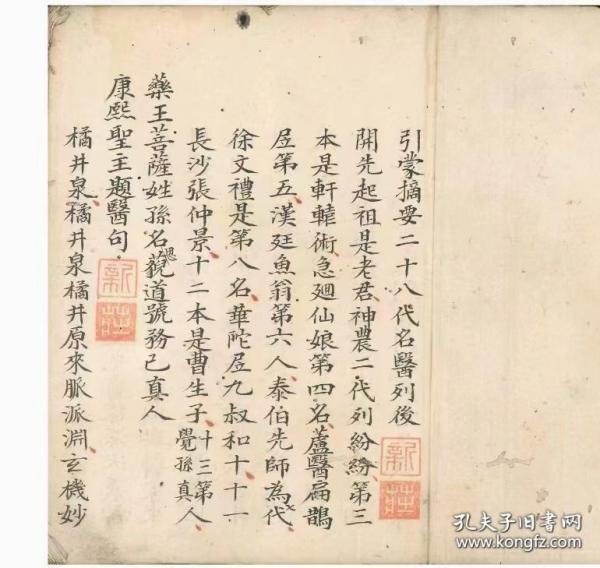 引蒙摘要二十八代名醫列後
開先起祖是老君神農二代列紛紛第三
本是軒轅術急廻仙娘第四名蘆醫扁鵲
居第五漢廷魚翁第六人泰伯先師為代
徐文禮是第八名華陀居九叔和十十一
長沙張仲景十二本是曹生子十三第覺孫真人
藥王菩薩姓孫名藐道號務己真人
康熙聖主題醫句
橘井泉橘井泉橘井原來脈派淵玄機妙
新莊
新莊
孔夫子旧书网
www.kongfz.com